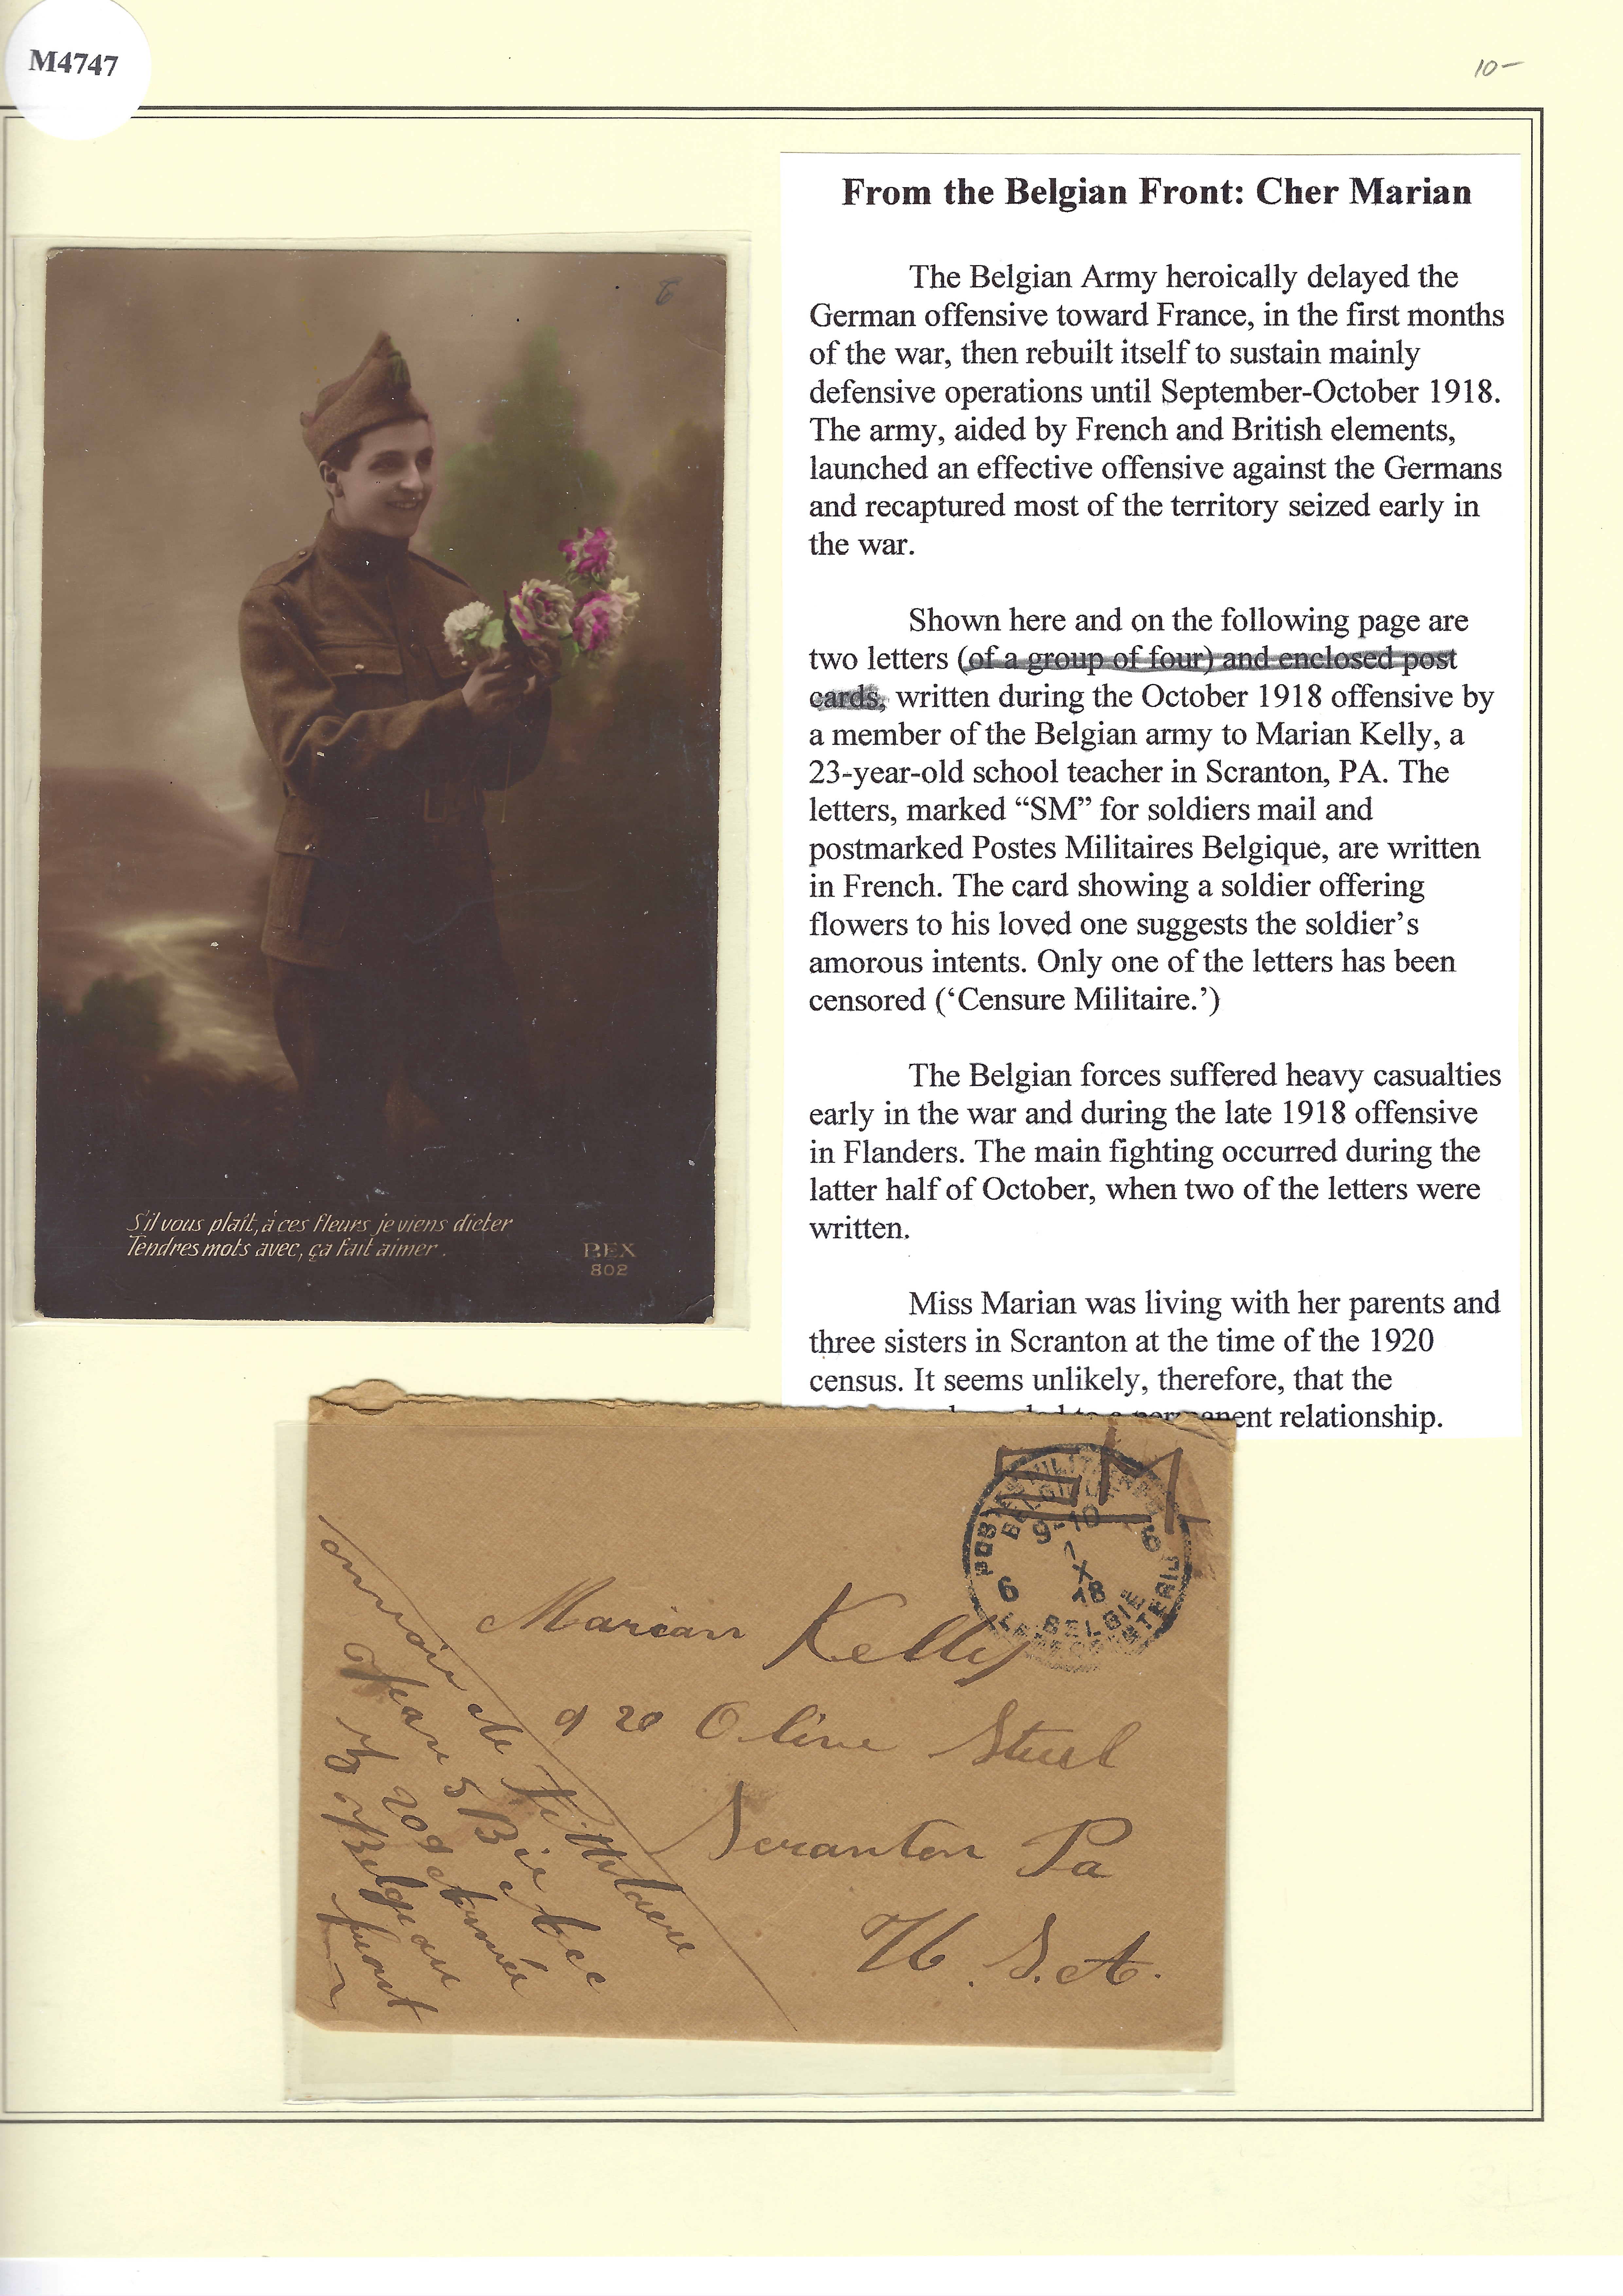 M4747
10-
From the Belgian Front: Cher Marian
The Belgian Army heroically delayed the
German offensive toward France, in the first months
of the war, then rebuilt itself to sustain mainly
defensive operations until September-October 1918.
The army, aided by French and British elements,
launched an effective offensive against the Germans
and recaptured most of the territory seized early in
the war.
Shown here and on the following page are
two letters (of a group of four) and enclosed post
cards, written during the October 1918 offensive by
a member of the Belgian army to Marian Kelly, a
23-year-old school teacher in Scranton, PA. The
letters, marked “SM” for soldiers mail and
postmarked Postes Militaires Belgique, are written
in French. The card showing a soldier offering
flowers to his loved one suggests the soldier’s
amorous intents. Only one of the letters has been
censored (‘Censure Militaire.’)
The Belgian forces suffered heavy casualties
early in the war and during the late 1918 offensive
in Flanders. The main fighting occurred during the
latter half of October, when two of the letters were
written.
Miss Marian was living with her parents and
three sisters in Scranton at the time of the 1920
census. It seems unlikely, therefore, that the
to a permanent relationship.
S'il vous plaît, à ces fleurs je viens dicter
Tendres mots avec, ça fait aimer.
REX
802
9-10
1
X
18
6
6
BELGIE
Marian Kelly
920 Oline Street
Scranton Pa
U.S.A.
envoie de
Jean
Belgian
front